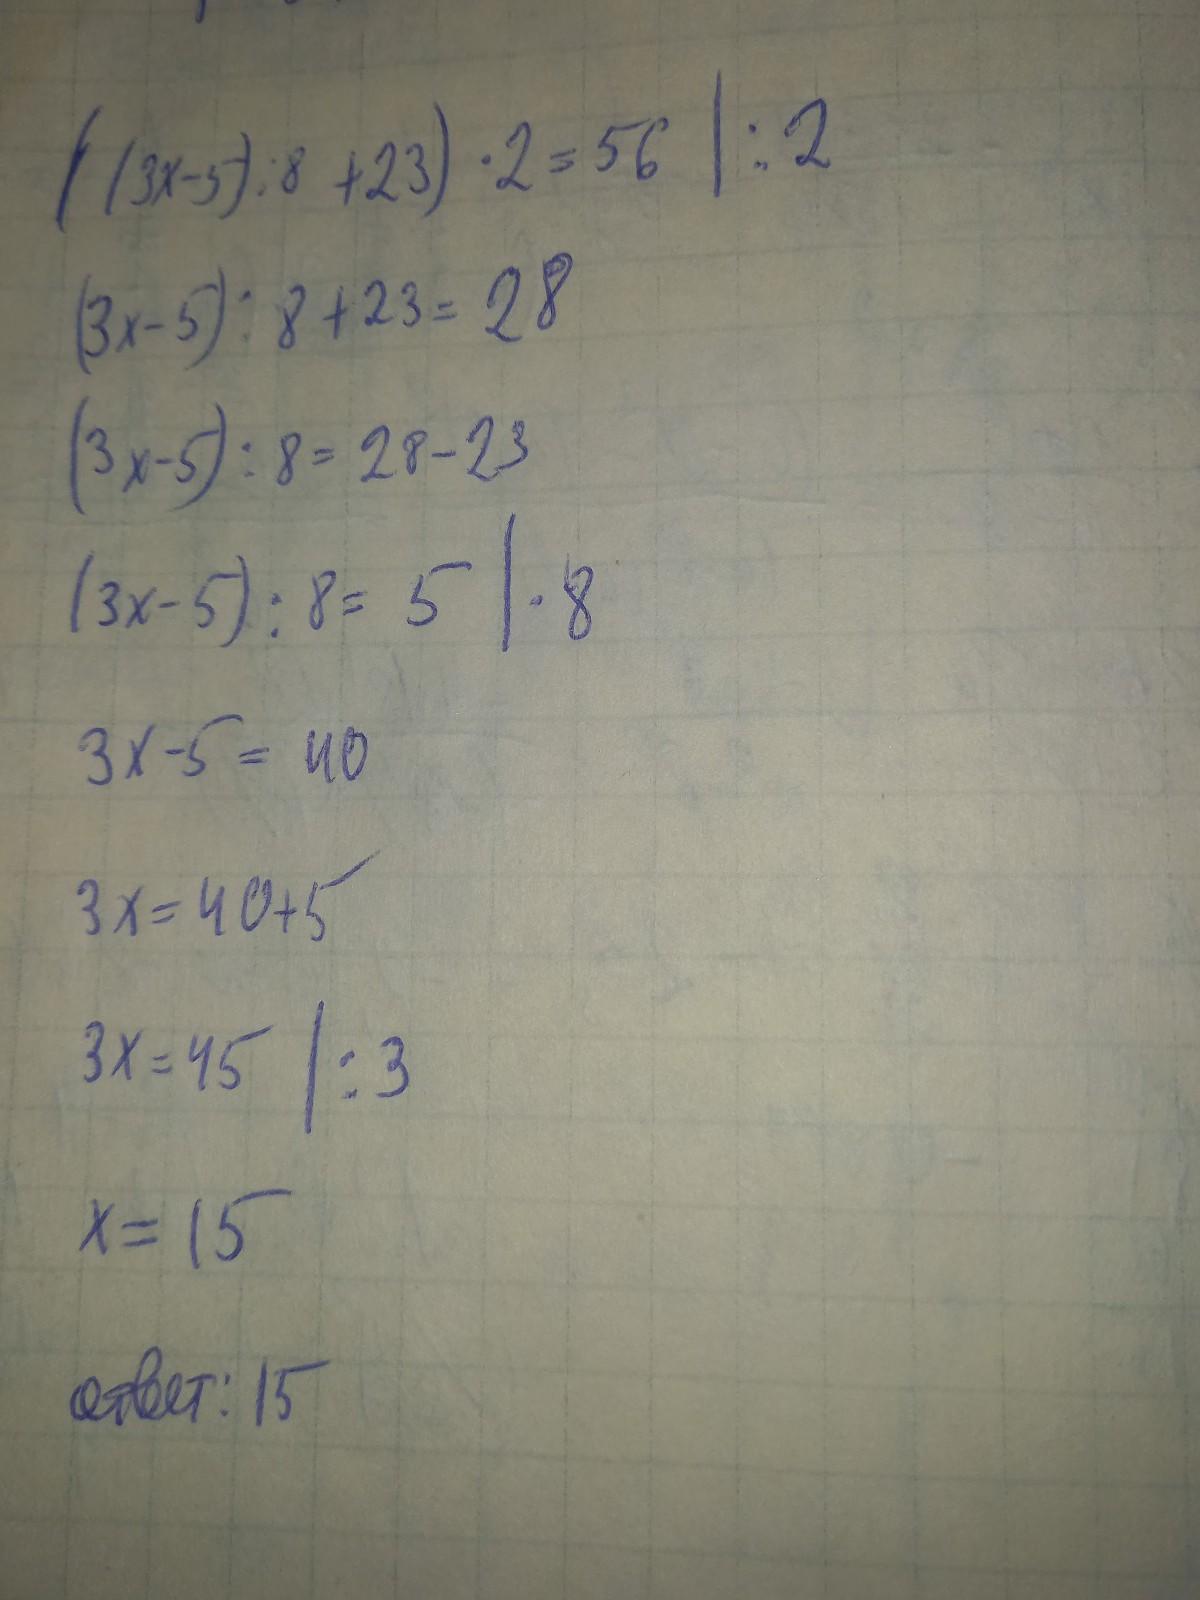 ((3x-5):8 +23)·2=56 |:2
(3x-5):8+23=28
(3x-5):8=28-23
(3x-5):8=5 |·8
3x-5=40
3x=40+5
3x=45 |:3
x=15
ответ: 15